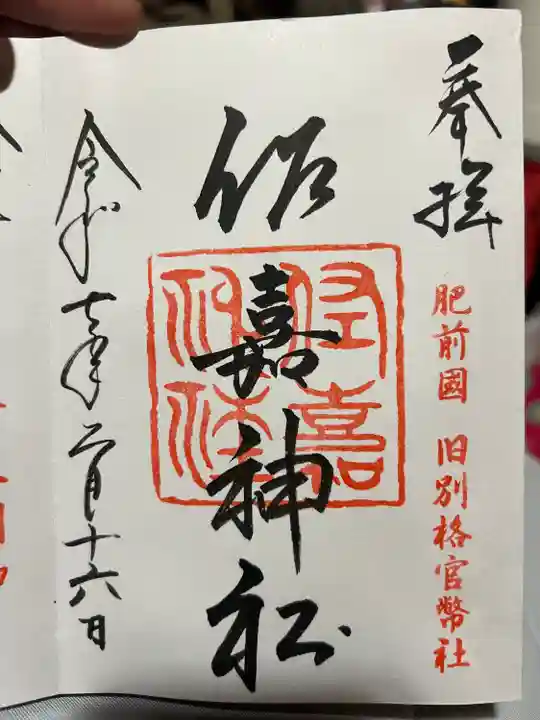 奉拝
肥前國 旧別格官幣社
佐嘉神社
佐嘉神社
令和七年二月十六日